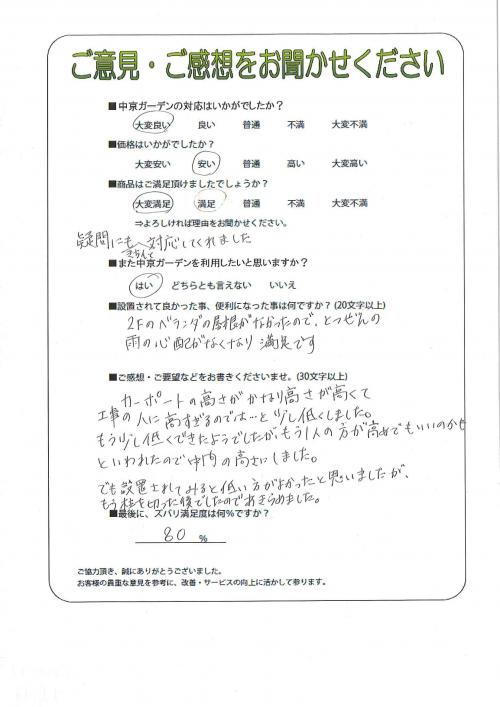 ご意見・ご感想をお聞かせください
■中京ガーデンの対応はいかがでしたか？
大変良い 良い 普通 不満 大変不満
■価格はいかがでしたか？
大変安い 安い 普通 高い 大変高い
■商品はご満足頂けましたでしょうか？
大変満足 満足 普通 不満 大変不満
⇒よろしければ理由をお聞かせください。
疑問にもきちんと対応してくれました
■また中京ガーデンを利用したいと思いますか？
はい どちらとも言えない いいえ
■設置されて良かった事、便利になった事は何ですか？(20文字以上)
2Fのベランダの屋根がなかったので、とつぜんの
雨の心配がなくなり満足です
■ご感想・ご要望などをお書きくださいませ。(30文字以上)
カーポートの高さがかなり高さが高くて
工事の人に高すぎるのでは…と少し低くしました。
もう少し低くできたようでしたが、もう1人の方が高めでもいいのかも
といわれたので中間の高さにしました。
でも設置されてみると低い方がよかったと思いましたが、
もう柱を切った後でしたのであきらめました。
■最後に、ズバリ満足度は何％ですか？
80 ％
ご協力頂き、誠にありがとうございました。
お客様の貴重な意見を参考に、改善・サービスの向上に活かして参ります。